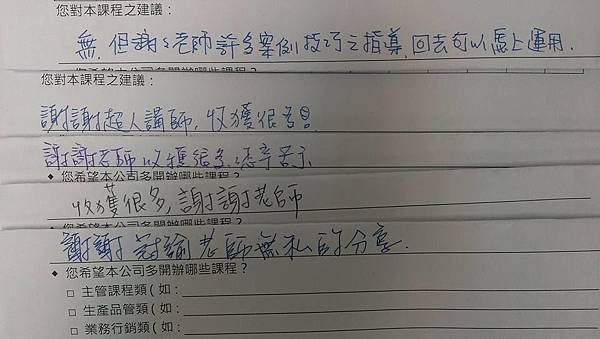 您對本課程之建議：
無，但謝謝老師許多案例技巧之指導，回去可以馬上運用．
您對本課程之建議：
謝謝超人講師，收獲很多！
謝謝老師 收穫很多，您辛苦了
◆ 您希望本公司多開辦哪些課程？
收獲很多，謝謝老師
謝謝 老師無私的分享．
◆ 您希望本公司多開辦哪些課程？
□ 主管課程類（如：
□ 生產品管類（如：
□ 業務行銷類（如：